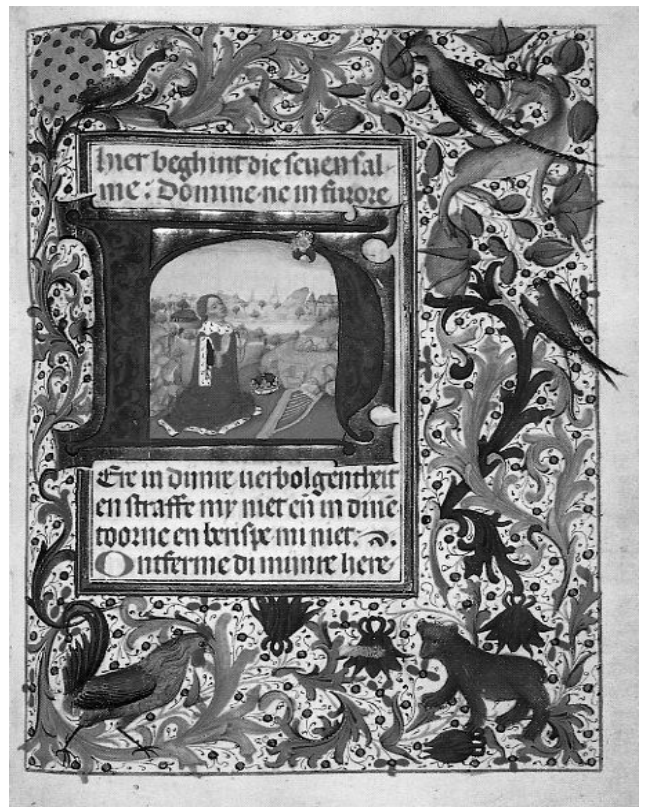 hier beghint die seuen sal-
me: Domine ne in furore
HEre in dinre uerbolgentheit
en straffe my niet eñ in dinē
toorne en berispe mi niet.
Ontferme di mijnre here